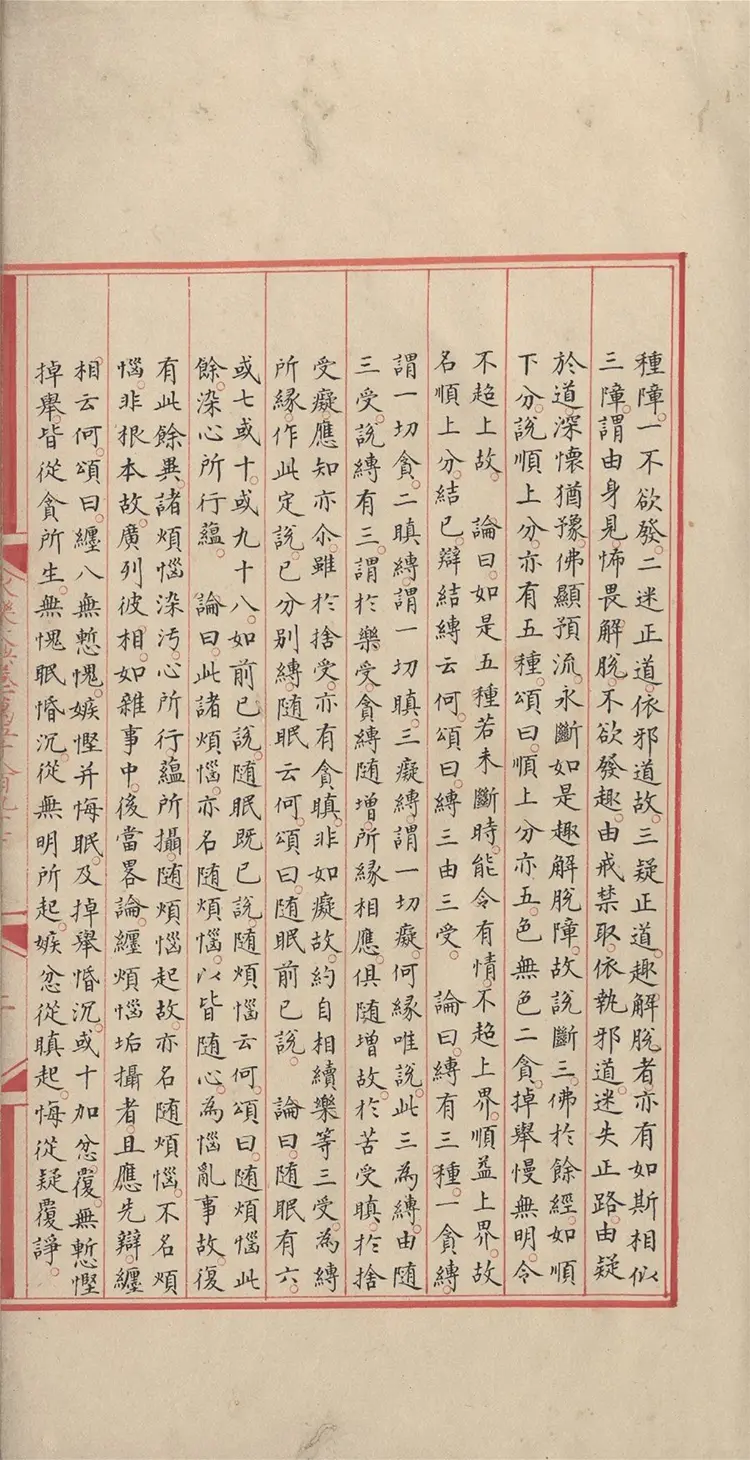 種障。一不欲發。二迷正道。依邪道故。三疑正道。趣解脫者亦有如斯相似
三障。謂由身見怖畏解脫。不欲發趣。由戒禁取。依執邪道。迷失正路。由疑
於道。深懷猶豫。佛顯預流。永斷如是趣解脫障。故說斷三。佛於餘經。如順
下分。說順上分。亦有五種。頌曰。順上分亦五。色無色二貪。掉舉慢無明。令
不超上故。　論曰。如是五種若未斷時。能令有情。不超上界。順益上界。故
名順上分。結已。辯結縛云何。頌曰。縛三由三受。　論曰。縛有三種。一貪縛。
謂一切貪。二瞋縛。謂一切瞋。三癡縛。謂一切癡。何緣唯說。此三為縛。由隨
三受。說縛有三。謂於樂受。貪縛隨增。所緣相應。俱隨增故。於苦受瞋。於捨
受癡。應知亦尒。雖於捨受。亦有貪瞋。非如癡故。約自相續樂等三受。為縛
所緣。作此定說。已分別縛。隨眠云何。頌曰。隨眠前已說。　論曰。隨眠有六。
或七或十。或九十八。如前已說。隨眠既已說。隨煩惱云何。頌曰。隨煩惱此
餘。染心所行蘊。　論曰。此諸煩惱。亦名隨煩惱。以皆隨心。為惱亂事故。復
有此餘異。諸煩惱染污。心所行蘊所攝。隨煩惱起故。亦名隨煩惱。不名煩
惱。非根本故。廣列彼相。如雜事中。後當畧論。纏煩惱垢攝者。且應先辯。纏
相云何。頌曰。纏八無慙愧。嫉慳并悔眠。及掉舉惛沉。或十加忿。覆。無慙慳
掉舉。皆從貪所生。無愧眠惛沉。從無明所起。嫉忿從瞋起。悔從疑覆諍。